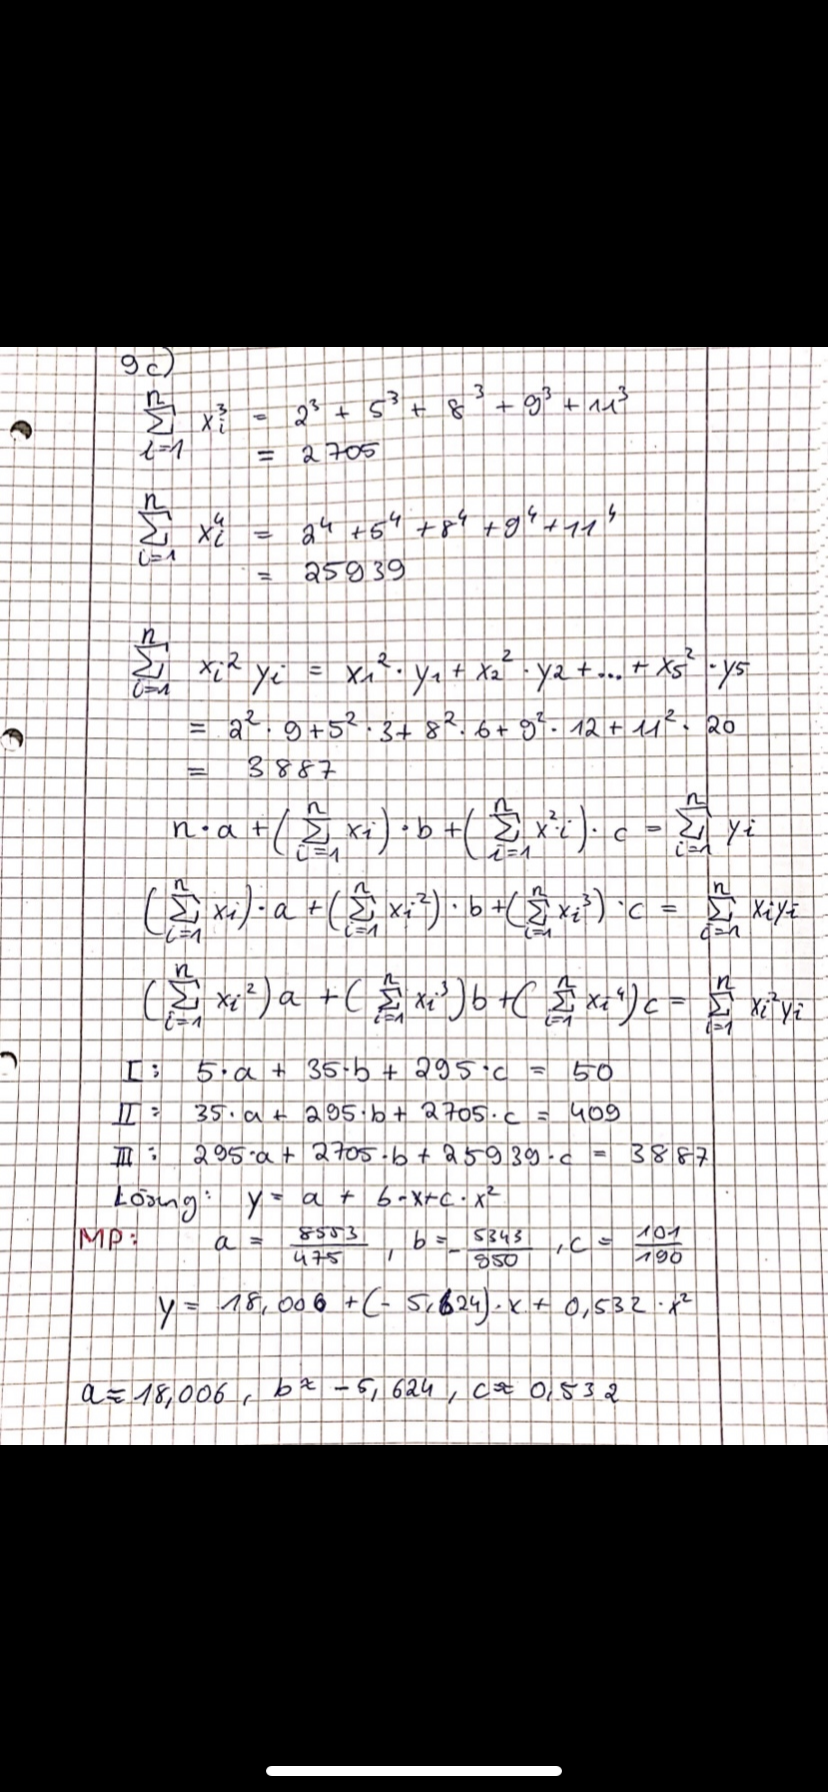 9c)
n
∑ xᵢ³ = 2³ + 5³ + 8³ + 9³ + 11³
i=1
= 2705
n
∑ xᵢ⁴ = 2⁴ + 5⁴ + 8⁴ + 9⁴ + 11⁴
i=1
= 25939
n
∑ xᵢ² yᵢ = x₁² · y₁ + x₂² · y₂ + ... + x₅² · y₅
i=1
= 2² · 9 + 5² · 3 + 8² · 6 + 9² · 12 + 11² · 20
= 3887
n · a + (∑ⁿᵢ₌₁ xᵢ) · b + (∑ⁿᵢ₌₁ x²ᵢ) · c = ∑ⁿᵢ₌₁ yᵢ
(∑ⁿᵢ₌₁ xᵢ) · a + (∑ⁿᵢ₌₁ xᵢ²) · b + (∑ⁿᵢ₌₁ xᵢ³) · c = ∑ⁿᵢ₌₁ xᵢyᵢ
(∑ⁿᵢ₌₁ xᵢ²) a + (∑ⁿᵢ₌₁ xᵢ³) b + (∑ⁿᵢ₌₁ xᵢ⁴) c = ∑ⁿᵢ₌₁ xᵢ²yᵢ
I: 5 · a + 35 · b + 295 · c = 50
II: 35 · a + 295 · b + 2705 · c = 409
III: 295 · a + 2705 · b + 25939 · c = 3887
Lösung: y = a + b · x + c · x²
MP: a = 8553/475, b = - 5343/950, c = 101/190
y = 18,006 + (- 5,624) · x + 0,532 · x²
a ≈ 18,006, b ≈ - 5,624, c ≈ 0,532